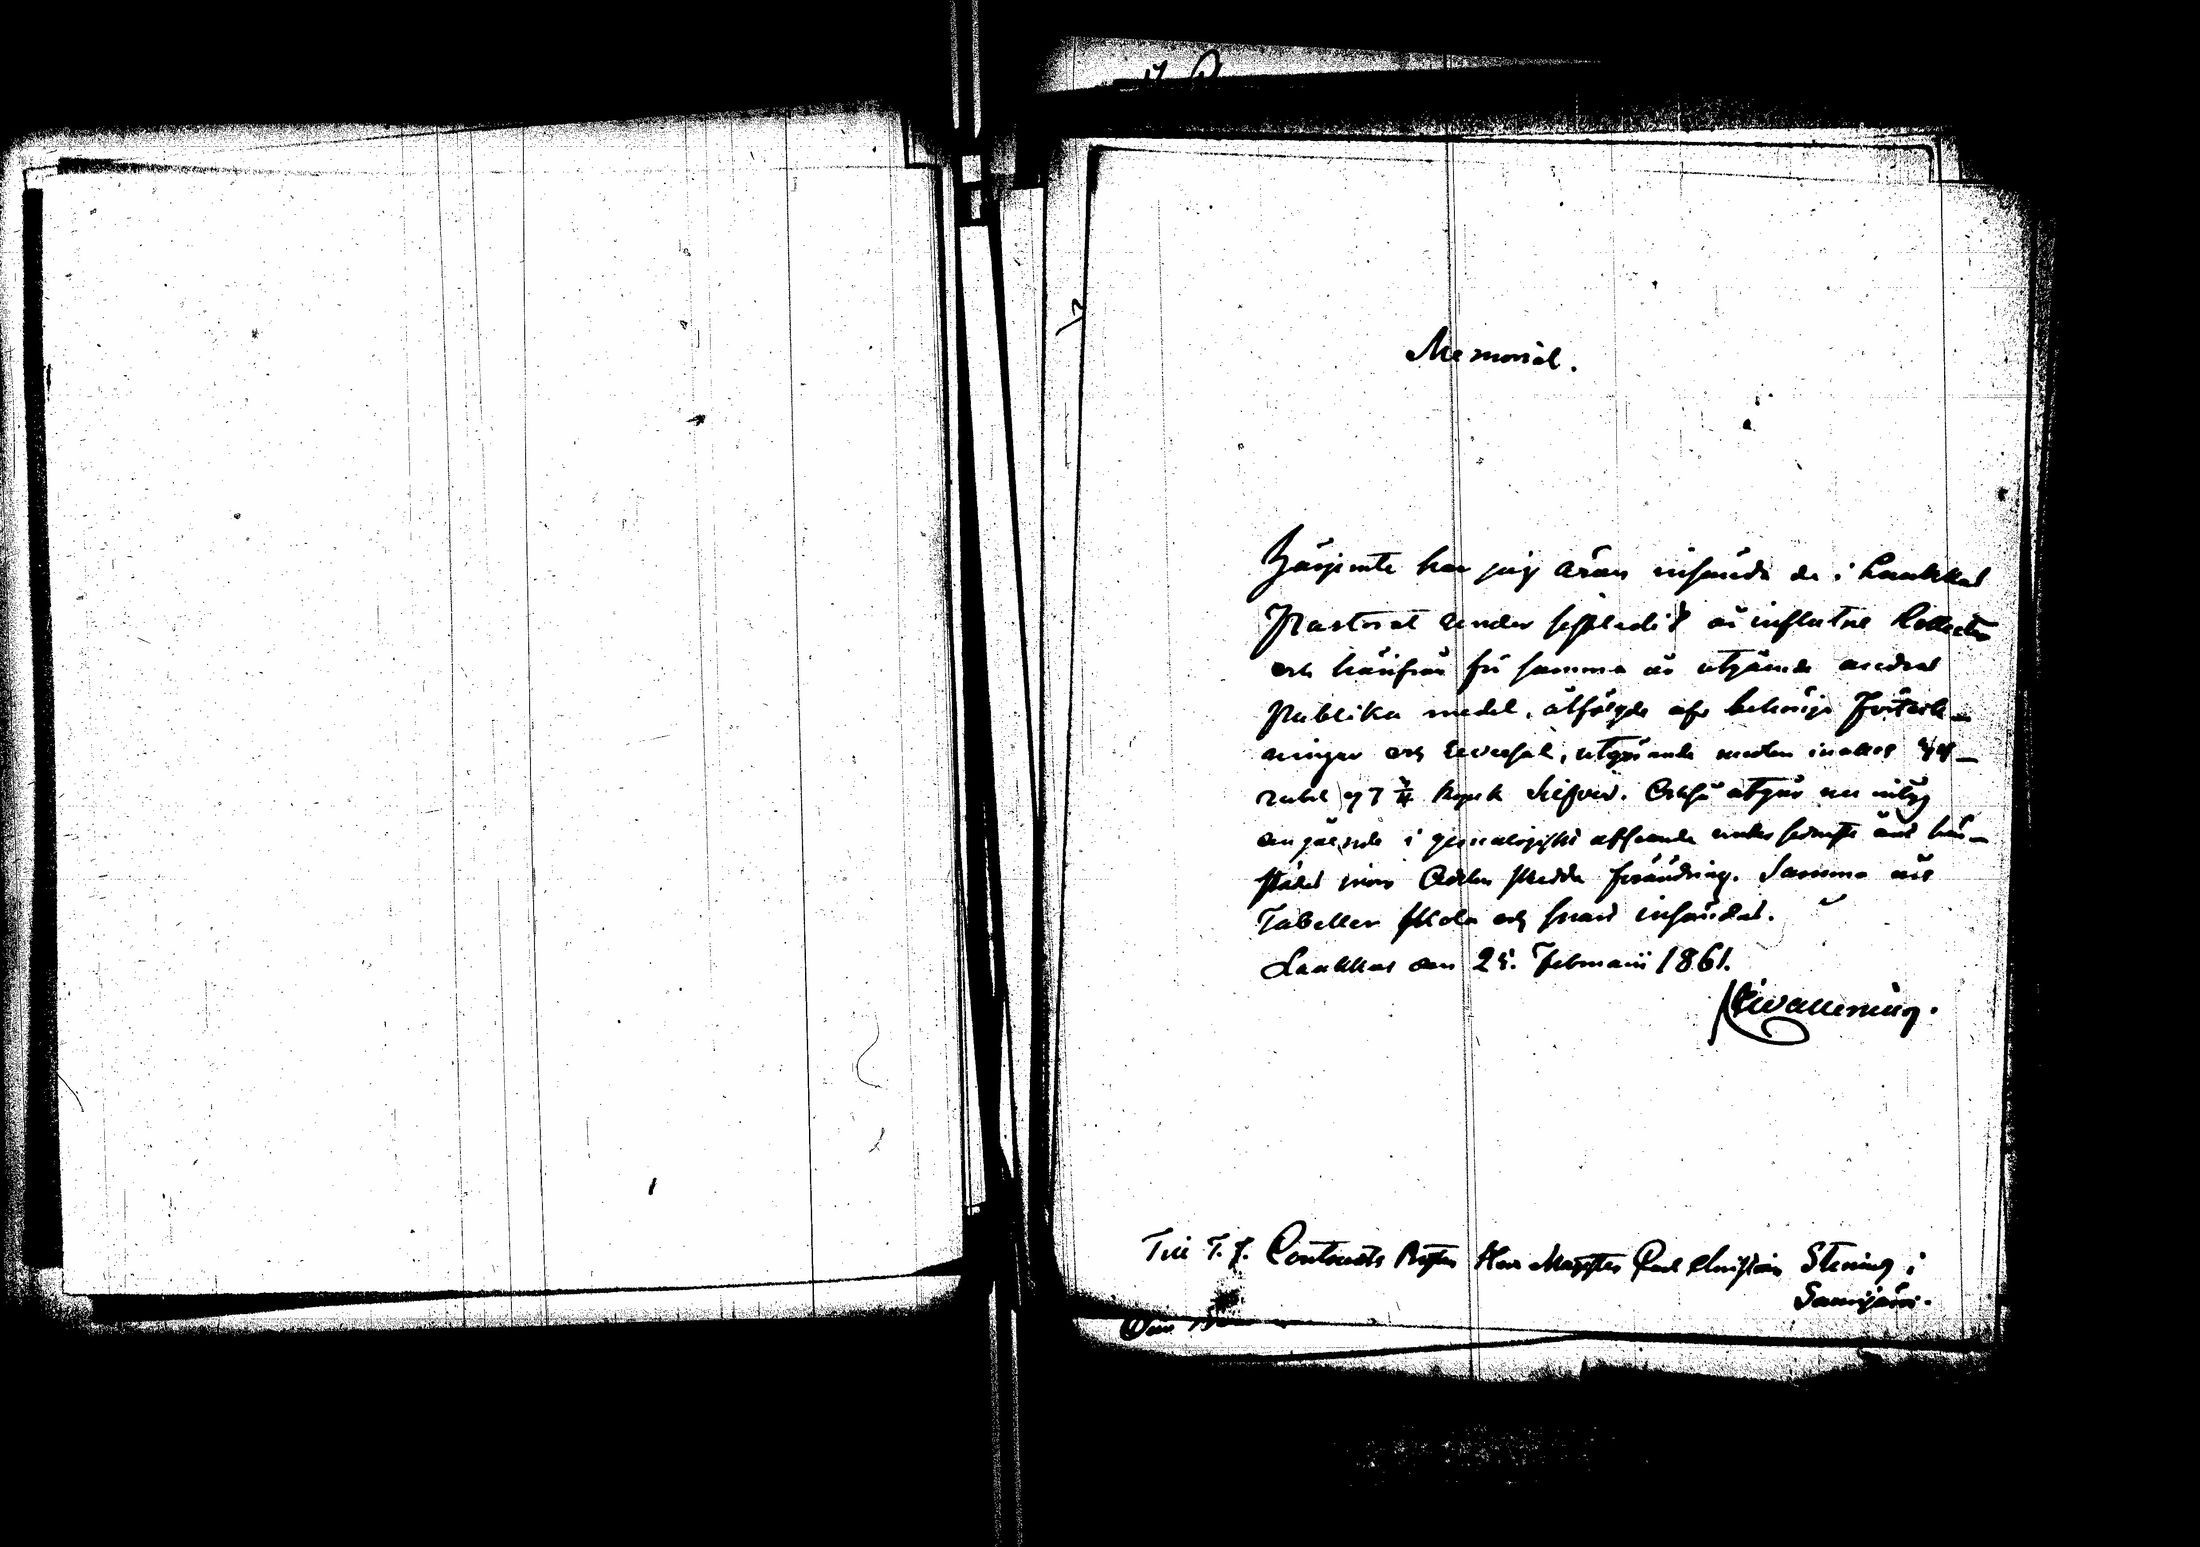 Memorial.
Härjemte har jag äran insända de i Laukkas
Pastorat under sistledit år influtne Kollecter
och härifrån för samma år utgående andra
Publika medel, åtföljde af behörige Förteck-
ningar och Reversal, utgörande medlen inalles
rubel 97 3/4 kopek Silfver. Också utgår nu
angående i genealogiskt afseende under sednaste året här-
städes inom Adeln skedda förändring. Samma
Tabeller skola och snart insändas.
Laukkas den 25. Februarii 1861.
Till T. f. Contracts Prosten Herr Magister Carl Christian Stenius i
Saarijärvi.